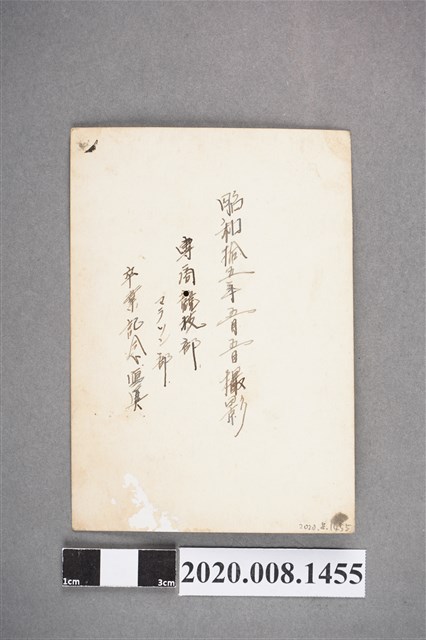 昭和拾五年五月五日撮影
専商競技部
マラソン部
卒業記念写真
2020.8.1455
1cm
3cm
2020.008.1455